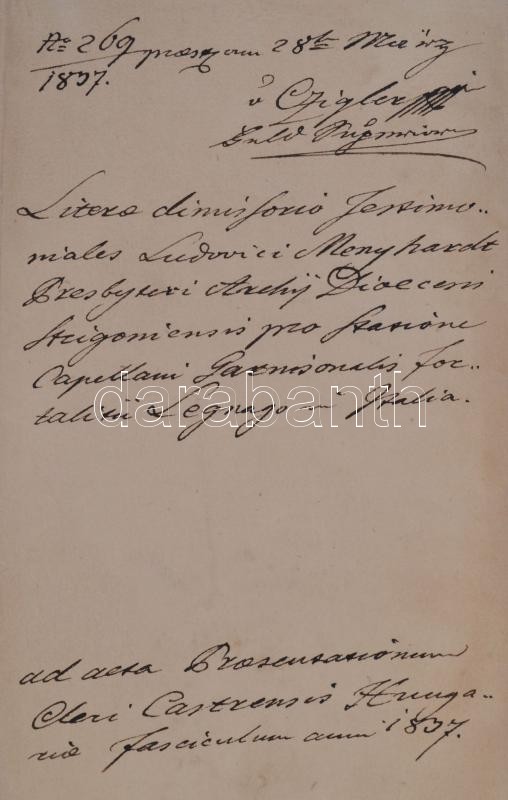 No 269
1837. praes am 28ten März
v Czigler
Literæ dimissorio Testimo..
niales Ludovici Menyhardt
Presbyteri Archij Dioecesis
Strigoniensis pro Statione
Capellani Garnisonalis For..
talitii Legnago in Italia.
darabanth
ad acta Præsentationum
Cleri Castrensis Hunga..
riæ fasciculum anni 1837.